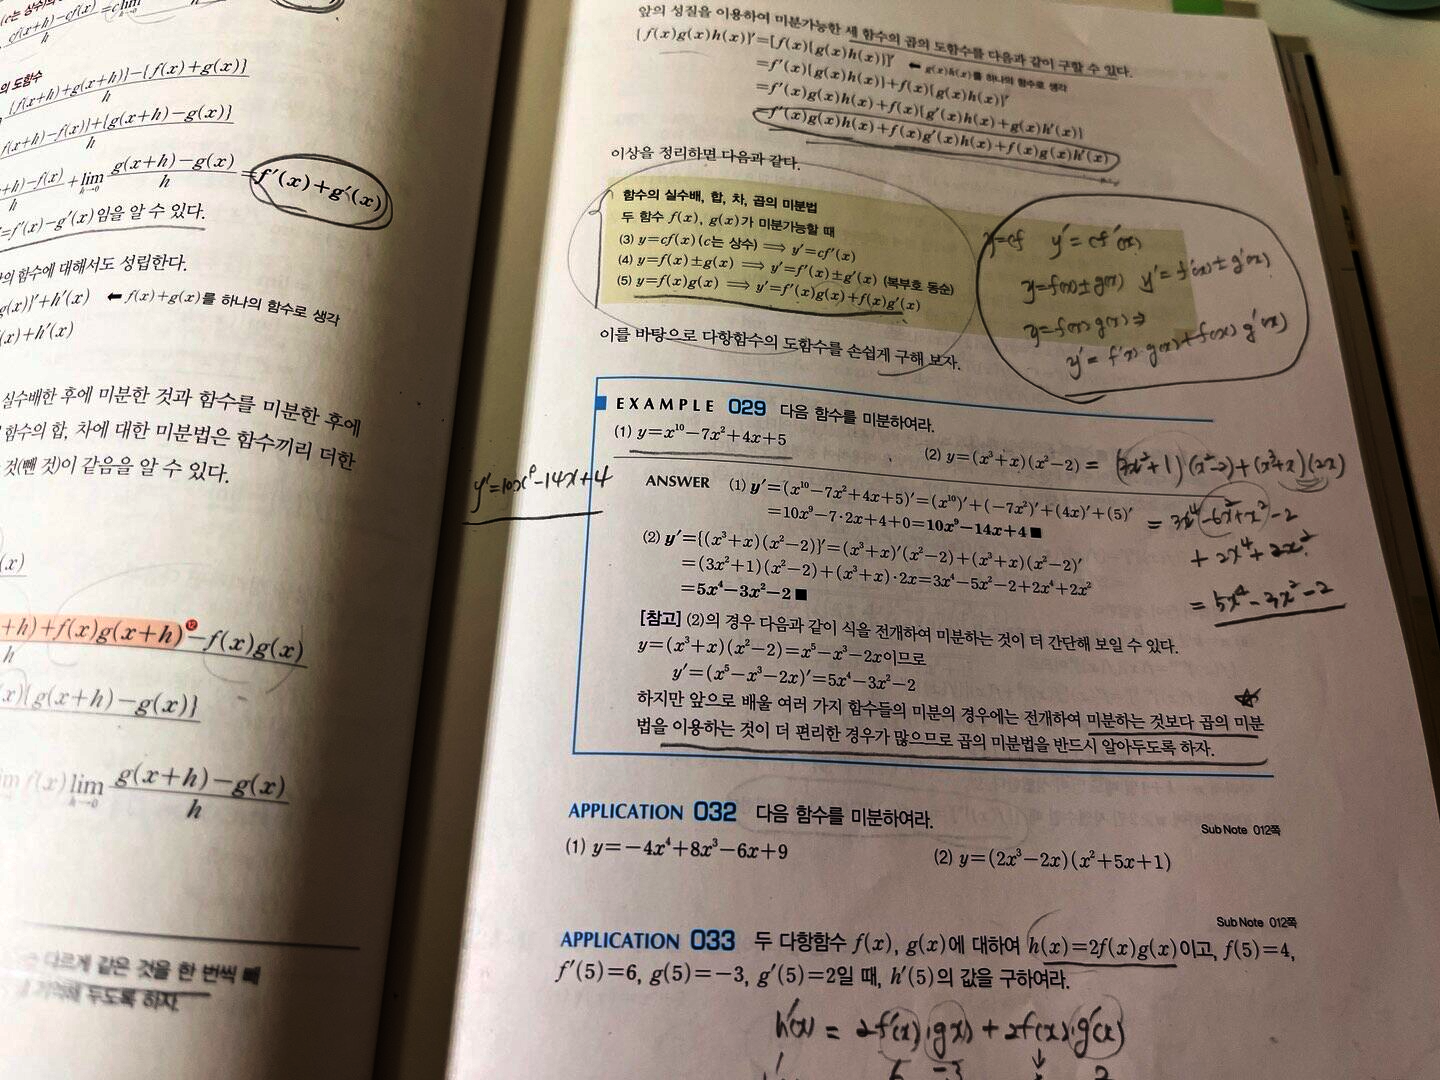 (c는 상수)의
cf(x+h)-cf(x)
h
=clim
의 도함수
{f(x+h)+g(x+h)}-{f(x)+g(x)}
h
f(x+h)-f(x)}+{g(x+h)-g(x)}
h
+h)-f(x)
h
+lim
h→0
g(x+h)-g(x)
h
=f′(x)+g′(x)
=f′(x)-g′(x)임을 알 수 있다.
의 함수에 대해서도 성립한다.
g(x)}′+h′(x) ⬅ f(x)+g(x)를 하나의 함수로 생각
(x)+h′(x)
실수배한 후에 미분한 것과 함수를 미분한 후에
함수의 합, 차에 대한 미분법은 함수끼리 더한
것(뺀 것)이 같음을 알 수 있다.
(x)
+h)+f(x)g(x+h)⑫-f(x)g(x)
h
x){g(x+h)-g(x)}
f(x)lim
h→0
g(x+h)-g(x)
h
다르게 같은 것을 한 번씩 빼
기억해 두도록 하자.
앞의 성질을 이용하여 미분가능한 세 함수의 곱의 도함수를 다음과 같이 구할 수 있다.
{f(x)g(x)h(x)}′=[f(x){g(x)h(x)}]′ ⬅ g(x)h(x)를 하나의 함수로 생각
=f′(x){g(x)h(x)}+f(x){g(x)h(x)}′
=f′(x)g(x)h(x)+f(x){g′(x)h(x)+g(x)h′(x)}
=f′(x)g(x)h(x)+f(x)g′(x)h(x)+f(x)g(x)h′(x)
이상을 정리하면 다음과 같다.
함수의 실수배, 합, 차, 곱의 미분법
두 함수 f(x), g(x)가 미분가능할 때
(3) y=cf(x) (c는 상수) ⟹ y′=cf′(x)
(4) y=f(x)±g(x) ⟹ y′=f′(x)±g′(x) (복부호 동순)
(5) y=f(x)g(x) ⟹ y′=f′(x)g(x)+f(x)g′(x)
y=cf y′=cf′(x)
y=f(x)±g(x) y′=f′(x)±g′(x)
y=f(x)g(x)⇒
y′=f′(x)g(x)+f(x)g′(x)
이를 바탕으로 다항함수의 도함수를 손쉽게 구해 보자.
EXAMPLE 029 다음 함수를 미분하여라.
(1) y=x¹⁰-7x²+4x+5
(2) y=(x³+x)(x²-2) = (3x²+1)(x²-2)+(x³+x)(2x)
y′=10x⁹-14x+4
= 3x⁴-6x²+x²-2
+2x⁴+2x²
= 5x⁴-3x²-2
ANSWER (1) y′=(x¹⁰-7x²+4x+5)′=(x¹⁰)′+(-7x²)′+(4x)′+(5)′
=10x⁹-7·2x+4+0=10x⁹-14x+4 ■
(2) y′={(x³+x)(x²-2)}′=(x³+x)′(x²-2)+(x³+x)(x²-2)′
=(3x²+1)(x²-2)+(x³+x)·2x=3x⁴-5x²-2+2x⁴+2x²
=5x⁴-3x²-2 ■
[참고] (2)의 경우 다음과 같이 식을 전개하여 미분하는 것이 더 간단해 보일 수 있다.
y=(x³+x)(x²-2)=x⁵-x³-2x이므로
y′=(x⁵-x³-2x)′=5x⁴-3x²-2
하지만 앞으로 배울 여러 가지 함수들의 미분의 경우에는 전개하여 미분하는 것보다 곱의 미분
법을 이용하는 것이 더 편리한 경우가 많으므로 곱의 미분법을 반드시 알아두도록 하자.
APPLICATION 032 다음 함수를 미분하여라.
Sub Note 012쪽
(1) y=-4x⁴+8x³-6x+9
(2) y=(2x³-2x)(x²+5x+1)
Sub Note 012쪽
APPLICATION 033 두 다항함수 f(x), g(x)에 대하여 h(x)=2f(x)g(x)이고, f(5)=4,
f′(5)=6, g(5)=-3, g′(5)=2일 때, h′(5)의 값을 구하여라.
h′(x) = 2f′(x)·g(x)+2f(x)·g′(x)
6 -3 2